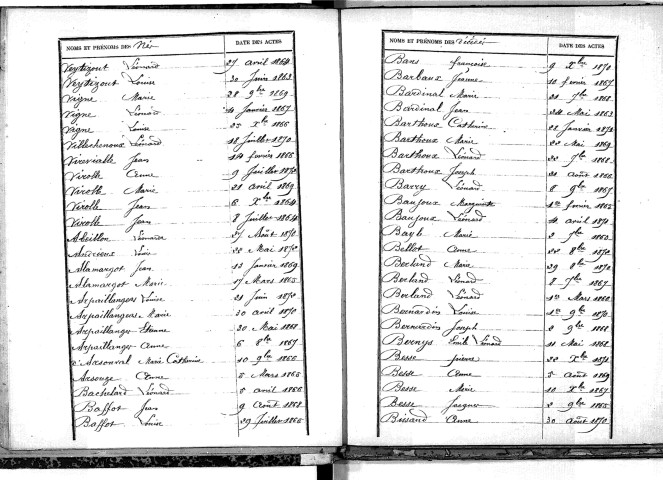 NOMS ET PRÉNOMS DES Nés DATE DES ACTES
Veytizout Léonard 27 avril 1864
Veytizout Louise 30 Juin 1863
Vigne Marie 28 9bre 1869
Vigne Léonard 24 Janvier 1867
Vigne Louise 23 Xbre 1866
Villechenoux Léonard 18 Juillet 1870
Virevialle Jean 14 février 1866
Virolle Anne 9 Juillet 1870
Virolle Marie 21 avril 1869
Virolle Jean 6 Xbre 1864
Virolle Jean 8 Juillet 1864
Abeillon Léonarde 27 Août 1870
22 Mai 1870
Alamargot Jean 13 Janvier 1869
Alamargot Marie 17 Mars 1865
Arpaillanges Louise 21 Juin 1870
Arpaillanges Marie 30 avril 1870
Arpaillanges Etienne 20 Mai 1868
Arpaillanges Anne 6 8bre 1867
d'Arsonval Marie Catherine 10 9bre 1866
Anne 5 Mars 1866
Bachelard Léonard 5 avril 1866
Baffot Jean 9 Août 1868
Baffot Louise 29 Juillet 1866
NOMS ET PRÉNOMS DES Décédés DATE DES ACTES
Bars françoise 9 Xbre 1870
Barlaux Jeanne 11 fevrier 1867
Bardinal Marie 21 7bre 1868
Bardinal Jean 24 Mai 1863
Barthoux Catherine 22 Janvier 1870
Barthoux Marie 22 Mai 1869
Barthoux Léonard 22 7bre 1868
Barthoux Joseph 21 Août 1868
Barry Léonard 8 9bre 1867
Baujoux Marguerite 1er fevrier 1862
Baujoux Léonard 4 avril 1870
Bayle Marie 2 7bre 1860
Bellot Anne 22 8bre 1870
Berland Marie 29 8bre 1870
Berland Léonard 8 7bre 1867
Berland Léonard 1er Mars 1862
Bernardin Louise 1er 9bre 1870
Bernardin Joseph 2 9bre 1868
Bernys Emile Léonard 11 Mai 1868
Besse pierre 22 Xbre 1870
Besse Anne 5 Août 1869
Besse Marie 10 Xbre 1867
Besse Jacques 2 9bre 1865
Bissaud Anne 30 Août 1870